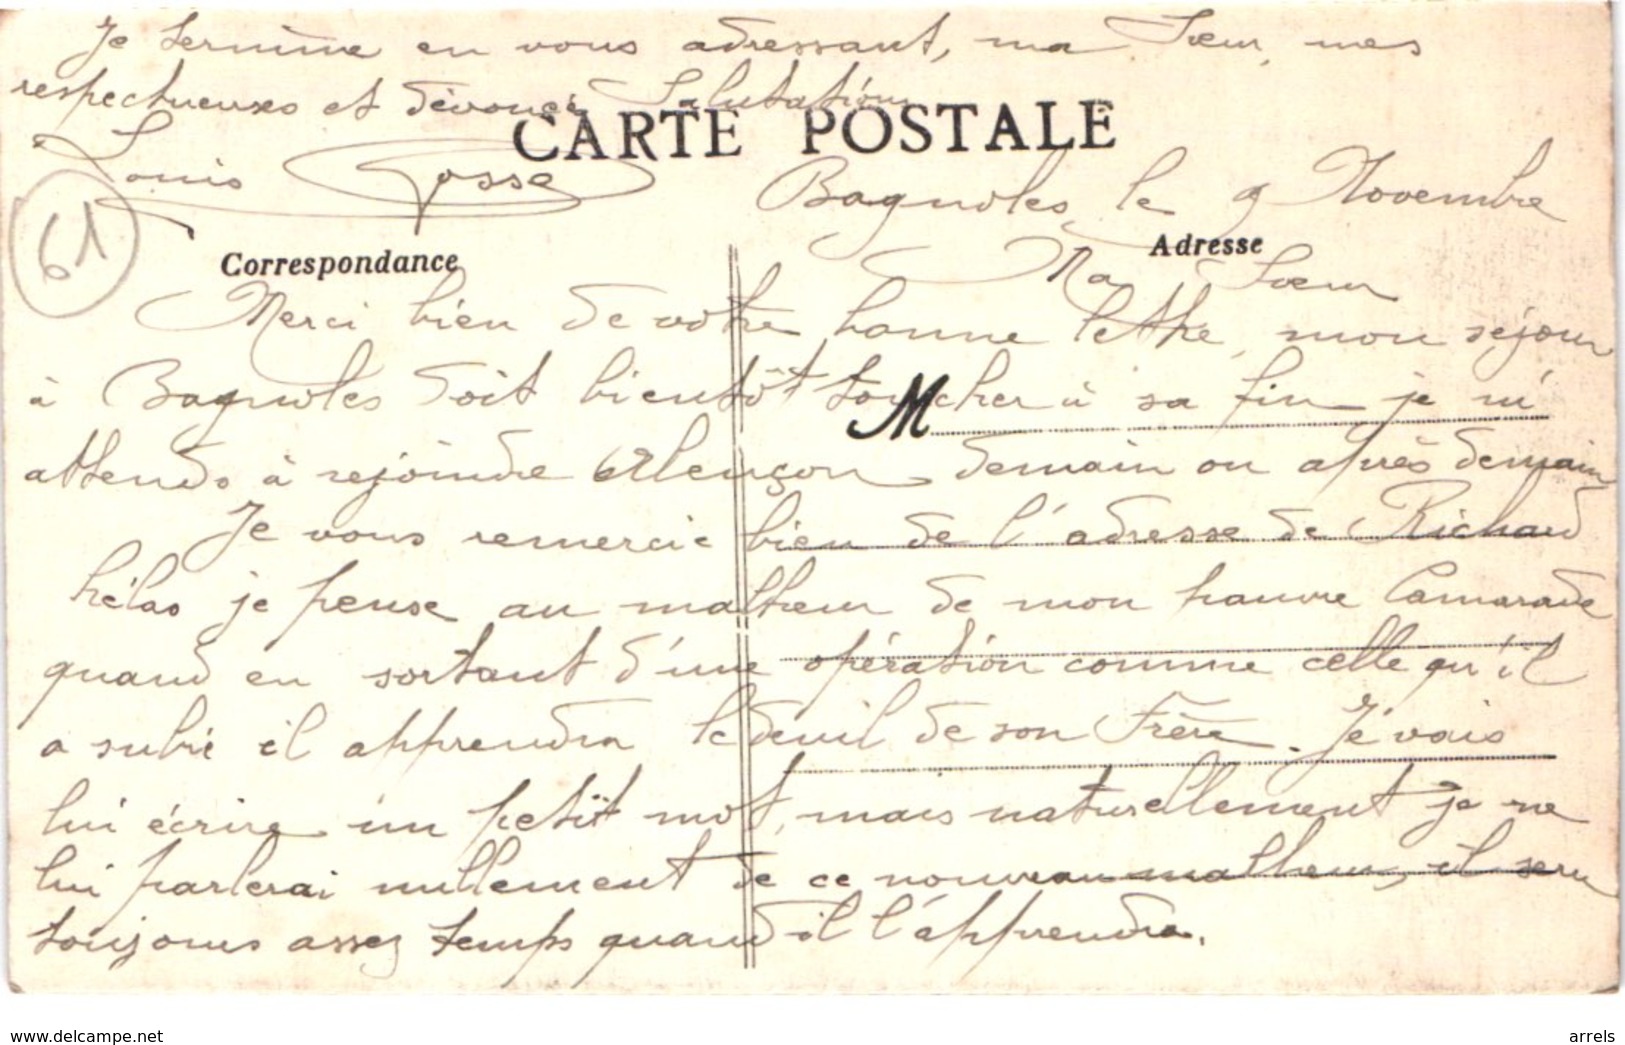 Je termine en vous adressant, ma Sœur, mes
respectueuses et dévouées Salutations
CARTE POSTALE
Louis Gosse
61
Bagnoles, le 9 Novembre
Correspondance
Adresse
Ma Sœur
Merci bien de votre bonne lettre, mon séjour
à Bagnoles doit bientôt toucher à sa fin je m'
M
attends à rejoindre Alençon demain ou après demain
Je vous remercie bien de l'adresse de Richard
hélas je pense au malheur de mon pauvre Camarade
quand en sortant d'une opération comme celle qu'il
a subie il apprendra le deuil de son Frère. Je vais
lui écrire un petit mot, mais naturellement je ne
lui parlerai nullement de ce nouveau malheur, il sera
toujours assez temps quand il l'apprendra.
www.delcampe.net
arrels